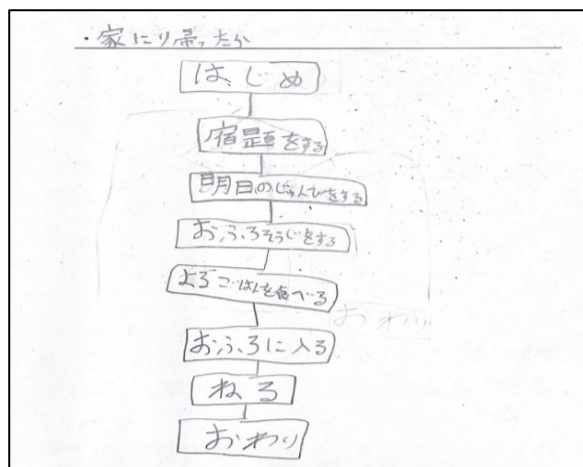 ・家にり帰ったら
はじめ
宿題をする
明日のじゅんびをする
おふろそうじをする
よるごはんを食べる
おわり
おふろに入る
ねる
おわり